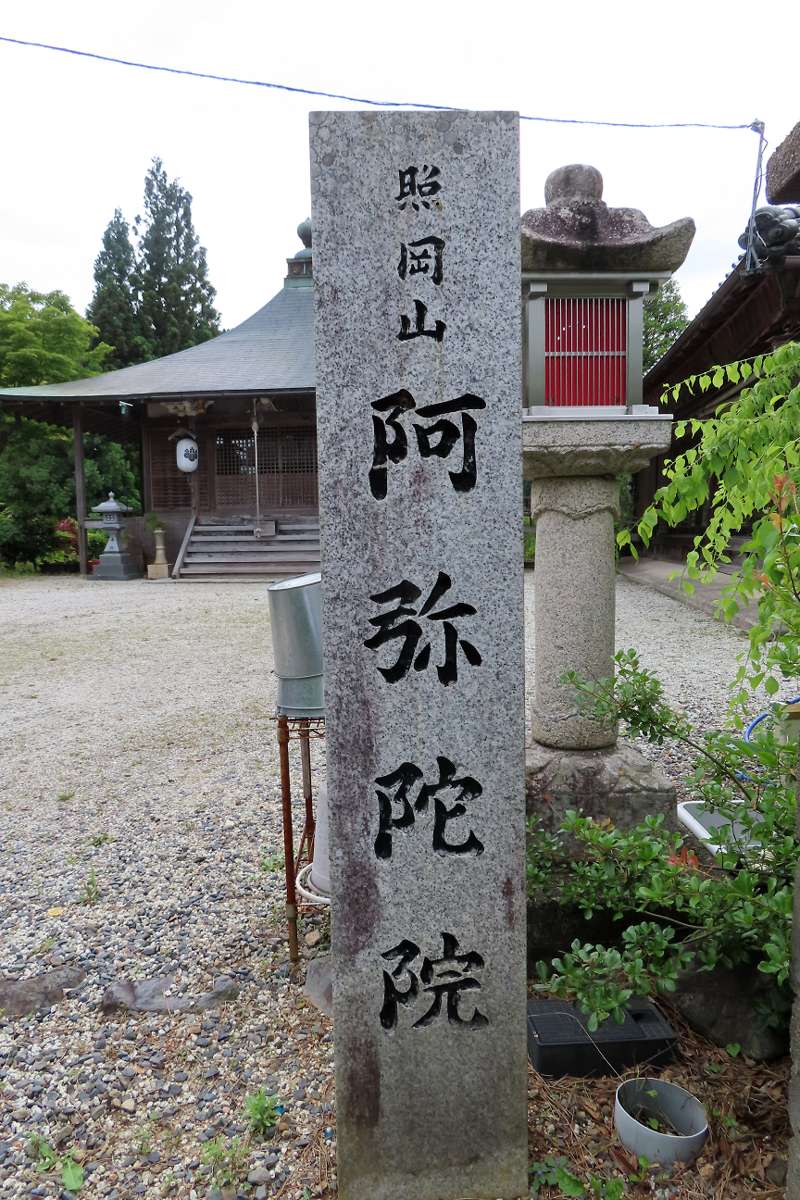 照岡山阿弥陀院